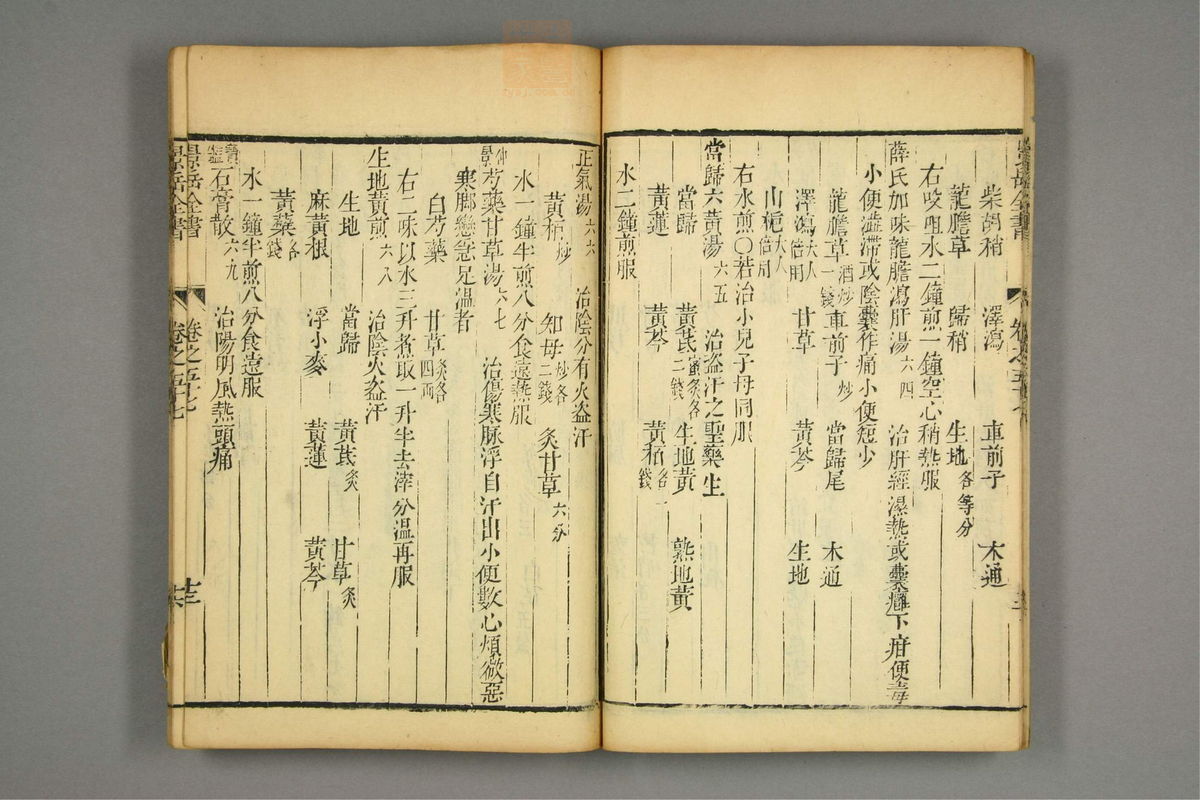 柴胡稍 澤瀉 車前子 木通
龍膽草 歸稍 生地各等分
右㕮咀水二鐘煎一鐘空心稍熱服
薛氏加味龍膽瀉肝湯六四 治肝經濕熱或囊癰下疳便毒
小便澁滯或陰囊作痛小便短少
龍膽草酒炒一錢 車前子炒 當歸尾 木通
澤瀉大人倍用 甘草 黃芩 生地
山梔大人倍用
右水煎○若治小兒子母同服
當歸六黃湯六五 治盜汗之聖藥生
當歸 黃芪蜜炙各二錢 生地黃 熟地黃
黃連 黃芩 黃柏各一錢
水二鐘煎服
正氣湯六六 治陰分有火盜汗
黃柏炒 知母炒各二錢 炙甘草六分
水一鐘半煎八分食遠熱服
仲景芍藥甘草湯六七 治傷寒脉浮自汗出小便數心煩微惡
寒脚攣急足溫者
白芍藥 甘草炙各四兩
右二味以水三升煮取一升半去滓分溫再服
生地黃煎六八 治陰火盜汗
生地 當歸 黃芪炙 甘草炙
麻黃根 浮小麥 黃連 黃芩
黃藥各錢
水一鐘半煎八分食遠服
寶鑑石膏散六九 治陽明風熱頭痛
景岳全書 卷之五十七